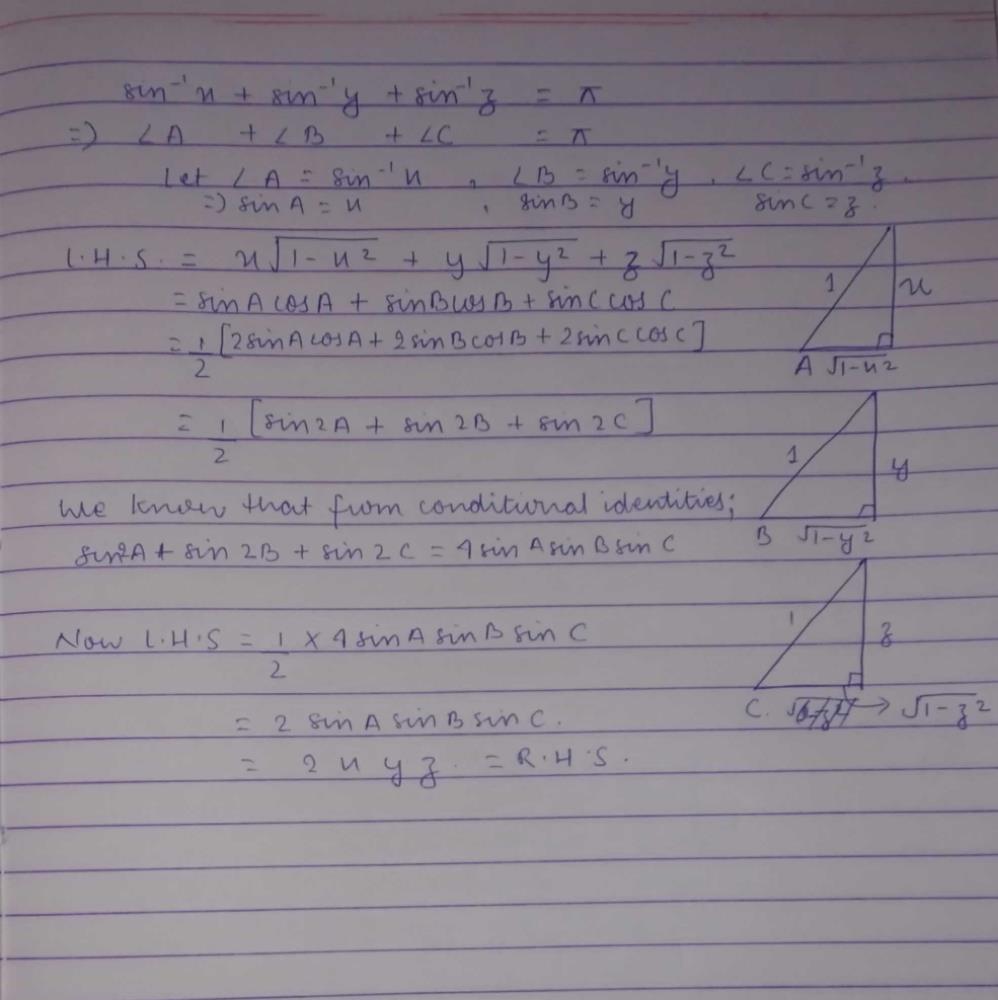 sin⁻¹x + sin⁻¹y + sin⁻¹z = π
⇒) ∠A + ∠B + ∠C = π
Let ∠A = sin⁻¹x , ∠B = sin⁻¹y . ∠C = sin⁻¹z .
⇒) sin A = x , sin B = y sin C = z .
L.H.S. = x√1-x² + y√1-y² + z√1-z²
1 x
= sinA cosA + sinB cosB + sinC cos C
= 1/2 [2sinA cosA + 2sinB cosB + 2sinC cosC]
A √1-x²
= 1/2 [sin2A + sin 2B + sin 2C]
1 y
We know that from conditional identities;
B √1-y²
sin2A + sin 2B + sin 2C = 4 sin A sin B sin C
Now L.H.S = 1/2 × 4 sin A sin B sin C
1 z
C. → √1-z²
= 2 sin A sin B sin C.
= 2 x y z . = R.H.S.